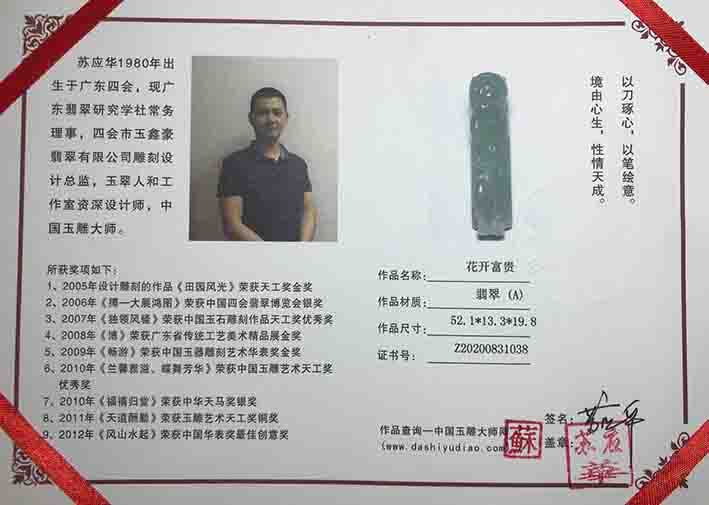 苏应华1980年出
生于广东四会，现广
东翡翠研究学社常务
理事，四会市玉鑫豪
翡翠有限公司雕刻设
计总监，玉翠人和工
作室资深设计师，中
国玉雕大师。
以刀琢心，以笔绘意。
境由心生，性情天成。
所获奖项如下：
1、2005年设计雕刻的作品《田园风光》荣获天工奖金奖
2、2006年《搏一大展鸿图》荣获中国四会翡翠博览会银奖
3、2007年《独领风骚》荣获中国玉石雕刻作品天工奖优秀奖
4、2008年《博》荣获广东省传统工艺美术精品展金奖
5、2009年《畅游》荣获中国玉器雕刻艺术华表奖金奖
6、2010年《兰馨雅溢、蝶舞芳华》荣获中国玉雕艺术天工奖
优秀奖
7、2010年《福禧归堂》荣获中华天马奖银奖
8、2011年《天道酬勤》荣获玉雕艺术天工奖铜奖
9、2012年《风山水起》荣获中国华表奖最佳创意奖
作品名称：花开富贵
作品材质：翡翠 (A)
作品尺寸：52.1*13.3*19.8
证书号：Z20200831038
作品查询一中国玉雕大师网
(www.dashiyudiao.com)
签名：苏应华
盖章：
蘇
苏应
華